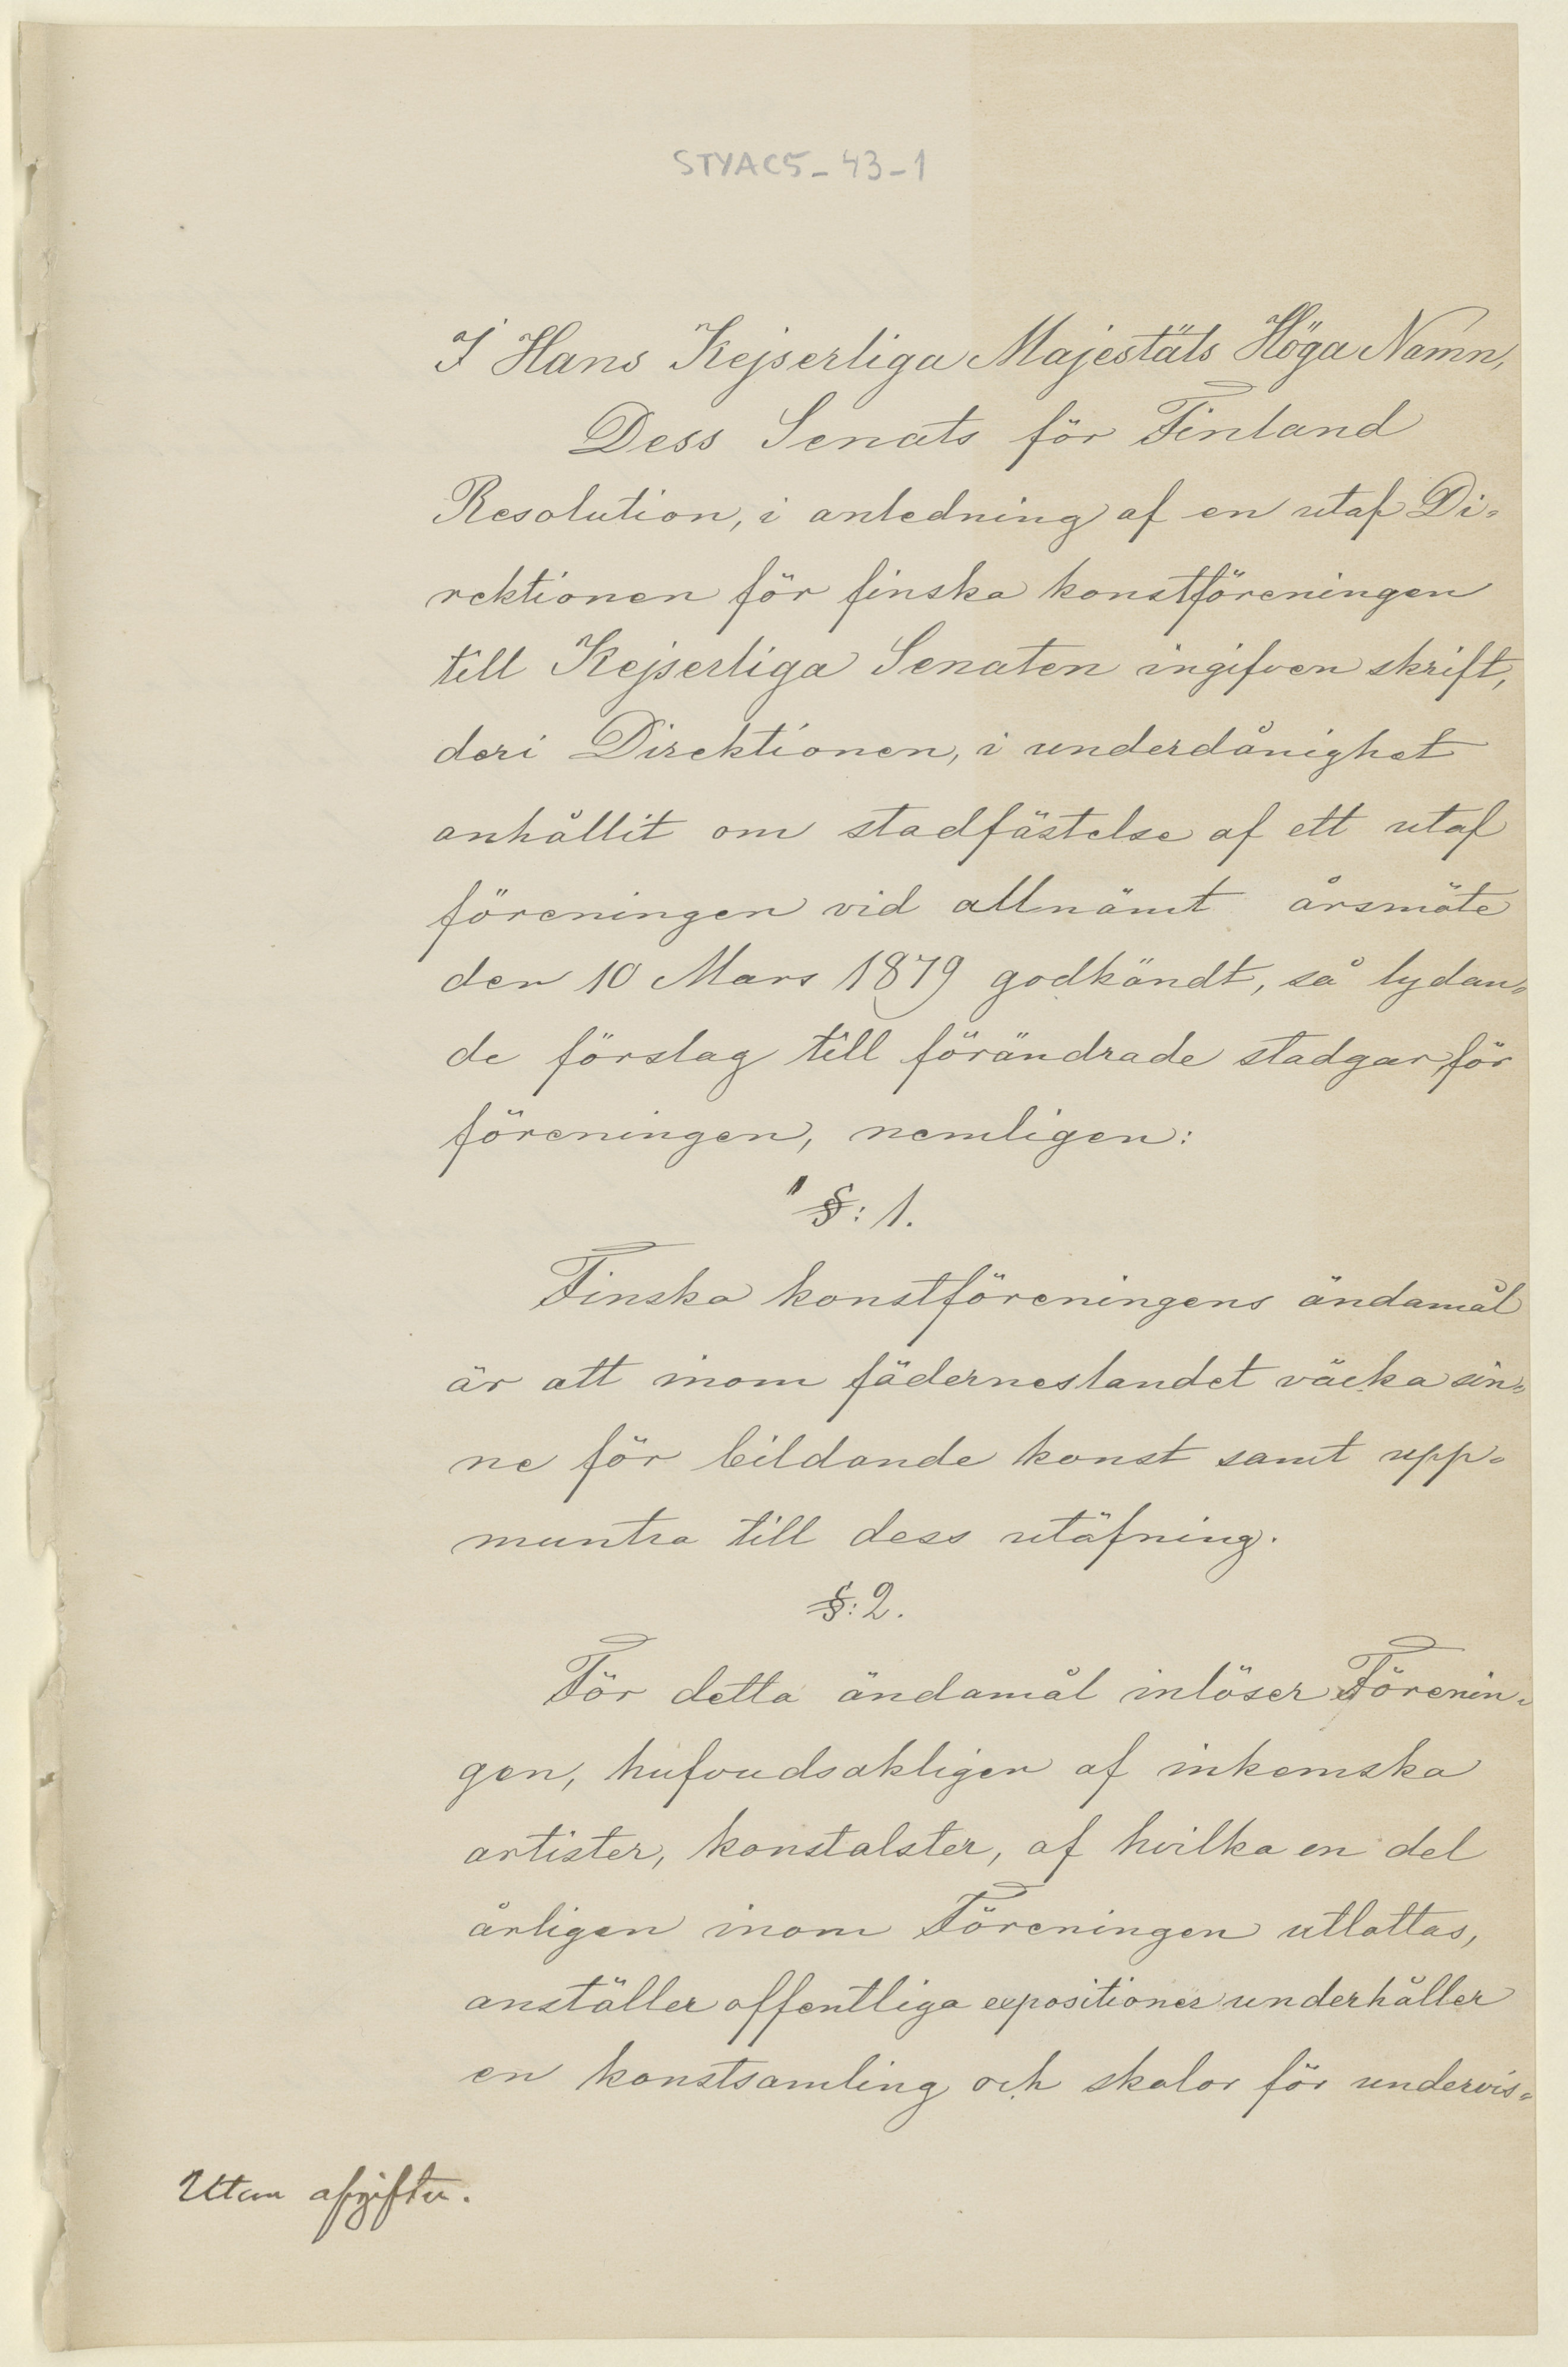 STYAC5-43-1
I Hans Kejserliga Majestäts Höga Namn,
Dess Senats för Finland
Resolution, i anledning af en utaf Di-
rektionen för finska konstföreningen
till Kejserliga Senaten ingifven skrift,
deri Direktionen, i underdånighet
anhållit om stadfästelse af ett utaf
föreningen vid allmänt årsmöte
den 10 Mars 1879 godkändt, så lydan-
de förslag till förändrade stadgar för
föreningen, nemligen:
"§: 1.
Finska konstföreningens ändamål
är att inom fäderneslandet väcka sin-
ne för bildande konst samt upp-
muntra till dess utöfning.
§: 2.
För detta ändamål inlöser Förenin-
gen, hufvudsakligen af inhemska
artister, konstalster, af hvilka en del
årligen inom Föreningen utlottas,
anställer offentliga expositioner underhåller
en konstsamling och skolor för undervis-
Utan afgifter.